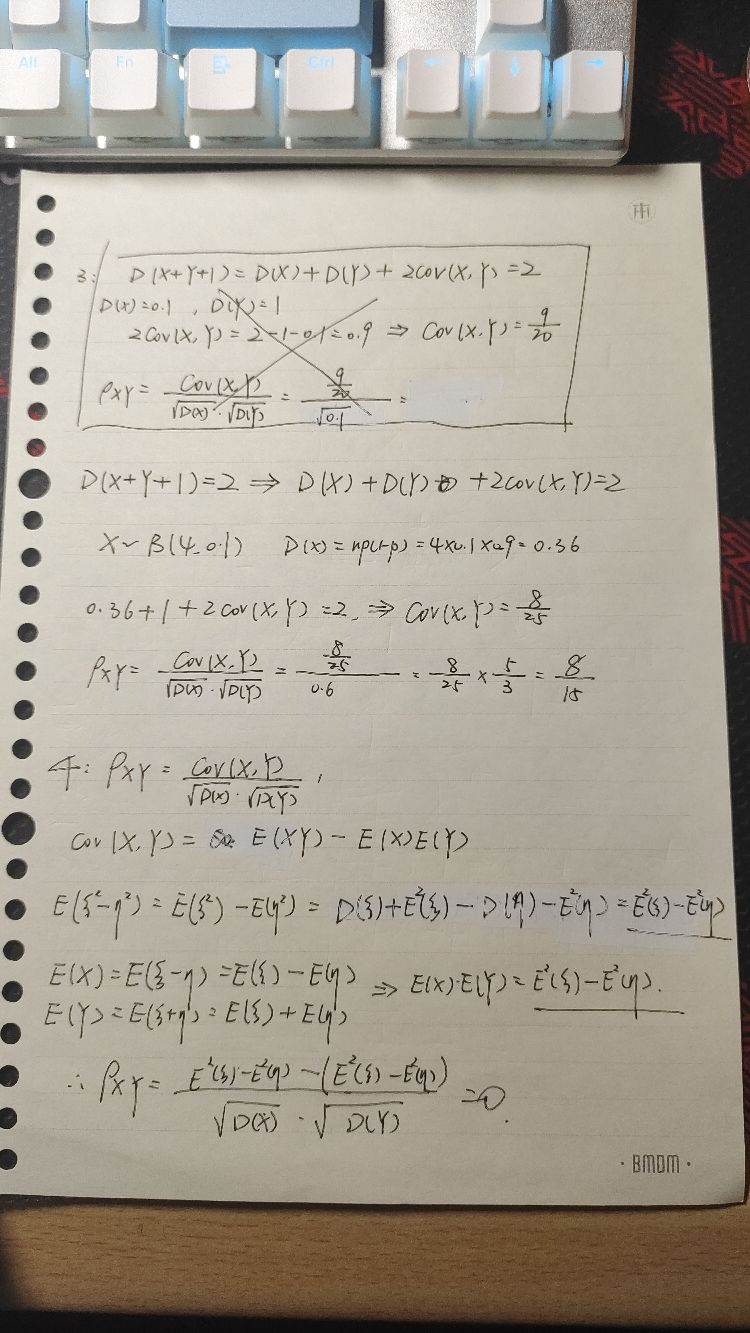 Alt Fn Ctrl ← ↓ →
3: D(X+Y+1)=D(X)+D(Y)+2cov(X,Y)=2
D(X)=0.1 , D(Y)=1
2Cov(X,Y)=2-1-0.1=0.9 ⇒ Cov(X,Y)=9/20
ρXY = Cov(X,Y)/(√D(X)·√D(Y)) = (9/20)/√0.1 =
D(X+Y+1)=2 ⇒ D(X)+D(Y)+2cov(X,Y)=2
X~B(4,0.1) D(X)=np(1-p)=4×0.1×0.9=0.36
0.36+1+2cov(X,Y)=2, ⇒ Cov(X,Y)=8/25
ρXY = Cov(X,Y)/(√D(X)·√D(Y)) = (8/25)/0.6 = 8/25 × 5/3 = 8/15
4: ρXY = Cov(X,Y)/(√D(X)·√D(Y)) ,
Cov(X,Y)= E(XY)-E(X)E(Y)
E(ξ²-η²)=E(ξ²)-E(η²)= D(ξ)+E²(ξ)-D(η)-E²(η)=E²(ξ)-E²(η)
E(X)=E(ξ-η)=E(ξ)-E(η) ⇒ E(X)·E(Y)=E²(ξ)-E²(η).
E(Y)=E(ξ+η)=E(ξ)+E(η)
∴ ρXY = (E²(ξ)-E²(η)-(E²(ξ)-E²(η)))/(√D(X)·√D(Y)) =0.
· BMDM ·